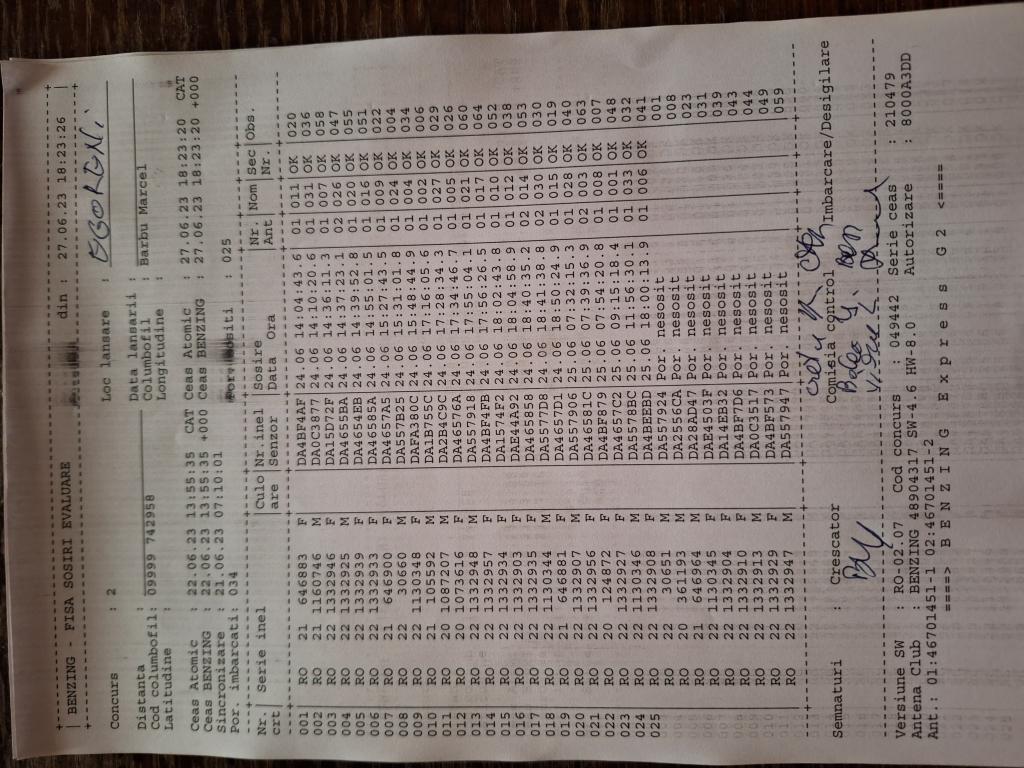 | BENZING - FISA SOSIRI EVALUARE din : 27.06.23 18:23:26 |
Concurs : 2 Loc lansare :
Distanta : Data lansarii :
Cod columbofil: 09999 742958 Columbofil : Barbu Marcel
Latitudine : Longitudine :
Ceas Atomic : 22.06.23 13:55:35 CAT Ceas Atomic : 27.06.23 18:23:20 CAT
Ceas BENZING : 22.06.23 13:55:35 +000 Ceas BENZING : 27.06.23 18:23:20 +000
Sincronizare : 21.06.23 07:10:01
Por. imbarcati: 034 : 025
Nr. Serie inel Culo Nr.inel Sosire Nr Nom Sec Obs.
crt are Senzor Data Ora Ant Nr.
001 RO 21 646883 F DA4BF4AF 24.06 14:04:43.6 01 011 OK 020
002 RO 21 1160746 M DA0C3877 24.06 14:10:20.6 01 031 OK 036
003 RO 22 1332946 F DA15D72F 24.06 14:36:11.3 01 007 OK 058
004 RO 22 1332925 M DA4655BA 24.06 14:37:23.1 02 026 OK 047
005 RO 22 1332939 F DA4654EB 24.06 14:39:52.8 01 020 OK 055
006 RO 22 1332933 F DA46585A 24.06 14:55:01.5 01 016 OK 051
007 RO 21 646900 F DA4657A5 24.06 15:27:43.5 01 009 OK 022
008 RO 22 30660 M DA557B25 24.06 15:31:01.8 01 024 OK 004
009 RO 22 1130348 F DAFA380C 24.06 15:48:44.9 01 004 OK 034
010 RO 21 105592 M DA1B755C 24.06 17:16:05.6 01 002 OK 006
011 RO 20 1087207 M DA2B4C9C 24.06 17:28:34.3 01 027 OK 029
012 RO 20 1073616 F DA46576A 24.06 17:34:46.7 01 005 OK 026
013 RO 22 1332948 M DA557918 24.06 17:55:04.1 01 021 OK 060
014 RO 22 1332957 F DA4BF4FB 24.06 17:56:26.5 01 017 OK 064
015 RO 22 1332934 F DA1574F2 24.06 18:02:43.8 01 010 OK 052
016 RO 22 1332903 F DAE44A92 24.06 18:04:58.9 01 012 OK 038
017 RO 22 1332935 F DA465858 24.06 18:40:35.2 02 014 OK 053
018 RO 22 1130344 M DA5577D8 24.06 18:41:38.8 02 030 OK 030
019 RO 21 646881 F DA4657D1 24.06 18:50:24.9 01 015 OK 019
020 RO 22 1332907 M DA557906 25.06 07:32:15.3 01 028 OK 040
021 RO 22 1332956 F DA46581C 25.06 07:39:36.9 02 003 OK 063
022 RO 20 124872 F DA4BF879 25.06 07:54:20.8 01 008 OK 007
023 RO 22 1332927 F DA4657C2 25.06 09:15:18.4 01 001 OK 048
024 RO 22 1130346 M DA5578BC 25.06 11:56:30.1 01 033 OK 032
025 RO 22 1332908 F DA4BEEBD 25.06 18:00:13.9 01 006 OK 041
RO 21 30651 M DA557924 Por. nesosit 001
RO 20 361193 M DA2556CA Por. nesosit 008
RO 21 646964 M DA28AD47 Por. nesosit 023
RO 22 1130345 F DAE4503F Por. nesosit 031
RO 22 1332904 F DA14EB32 Por. nesosit 039
RO 22 1332910 F DA4BF7D6 Por. nesosit 043
RO 22 1332913 M DA0C3517 Por. nesosit 044
RO 22 1332929 F DA4BF573 Por. nesosit 049
RO 22 1332947 M DA557947 Por. nesosit 059
Semnaturi : Crescator Comisia control Imbarcare/Desigilare
Versiune SW : RO-02.07 Cod concurs : 049442 Serie ceas : 210479
Antena Club : BENZING 48904317 SW-4.6 HW-8.0 Autorizare : 8000A3DD
Ant.: 01:46701451-1 02:46701451-2
====> B E N Z I N G E x p r e s s G 2 <====